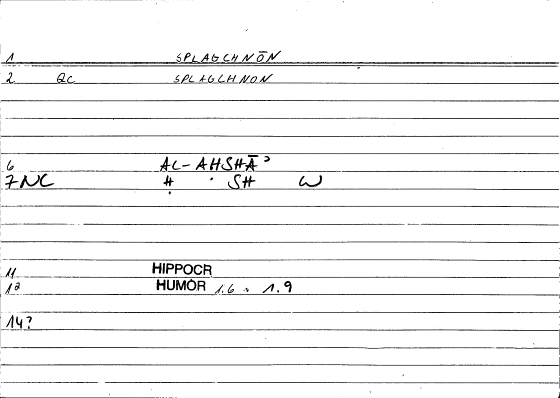 1 SPLAGCHNŌN
2 QC SPLAGCHNON
6 AL-AHSHĀ'
7 NC Ḥ SH W
11 HIPPOCR
12 HUMOR 1.6 1.9
14?